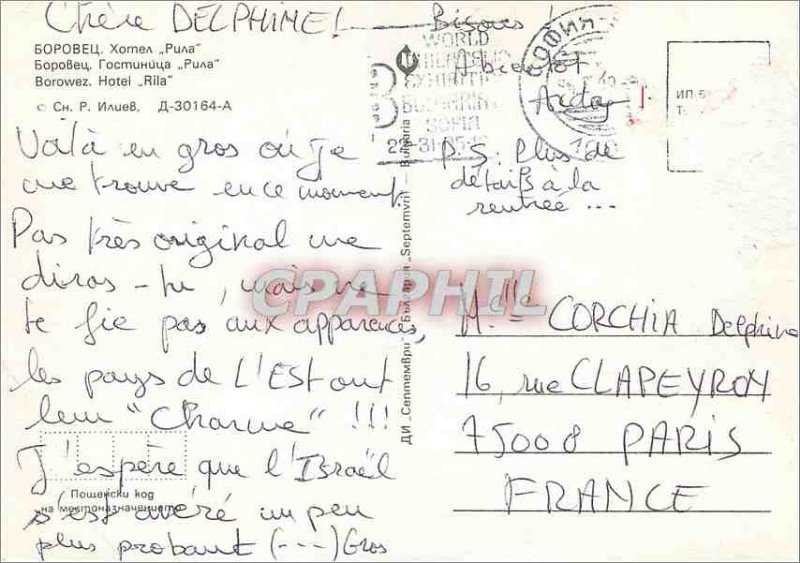 Chère DELPHINE!
БОРОВЕЦ. Хотел „Рила"
Боровец. Гостиница „Рила"
Borowez. Hotel „Rila"
© Сн. Р. Илиев. Д-30164-А
Voilà en gros où je
me trouve en ce moment.
Pas très original me
diras-tu, mais ne
te fie pas aux apparences,
les pays de L'EST ont
leur "Charme" !!!
J'espère que l'Israël
s'est avéré un peu
plus probant (---) Gros
Пощенски код
на местоназначението
Bisous!
A bientôt
P.S. Plus de
détails à la
rentrée ...
WORLD
EXHIBITION
BULGARIA
SOFIA
СОФИЯ
ДИ „Септември" България „Septemvri" Bulgaria
CPAPHIL
Melle CORCHIA Delphine
16, rue CLAPEYRON
75008 PARIS
FRANCE